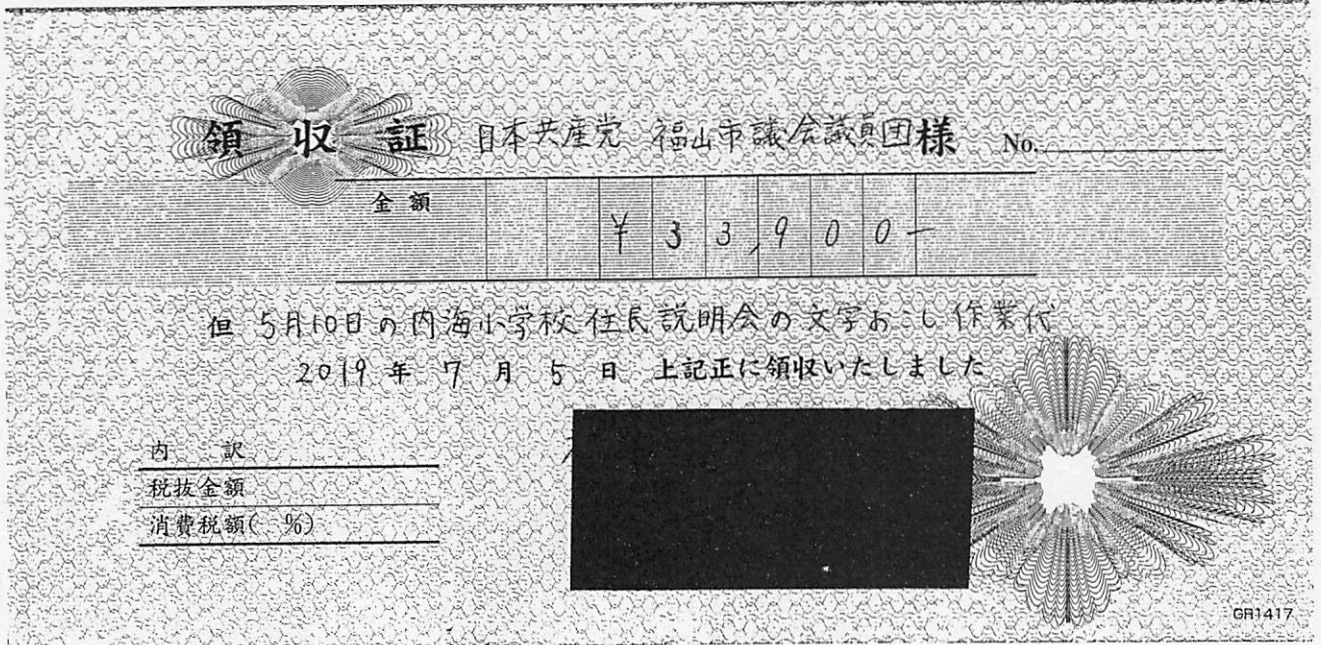 領収証 日本共産党 福山市議会議員団様 No.
金額 ¥33,900-
但 5月10日の内海小学校住民説明会の文字おこし作業代
2019年 7月 5日 上記正に領収いたしました
内 訳
税抜金額
消費税額( %)
GR1417